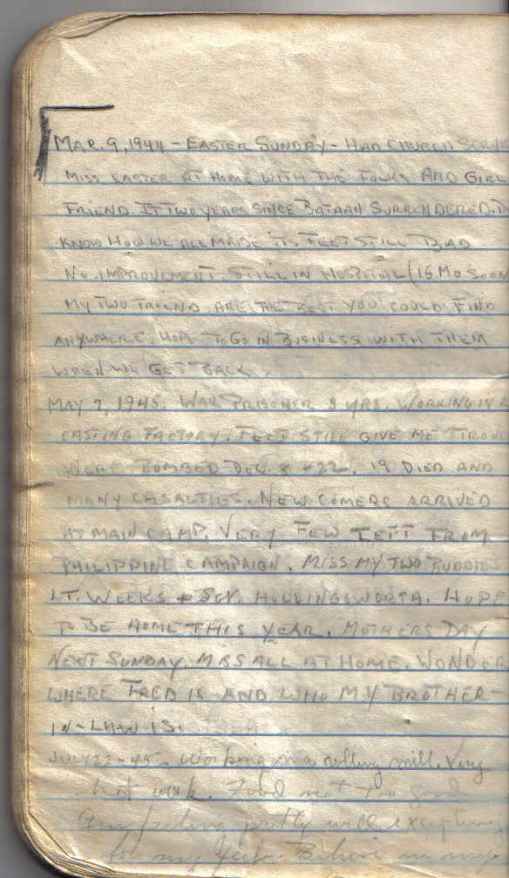 MAR. 9, 1944 - EASTER SUNDAY - HAD CHURCH
MISS EASTER AT HOME WITH THE FOLKS AND GIRL
FRIEND. IT TWO YEARS SINCE BATAAN SURRENDERED.
KNOW HOW WE ALL MADE IT. FEET STILL BAD
NO IMPROVEMENT. STILL IN HOSPITAL (16 MO SOON
MY TWO FRIEND ARE THE BEST YOU COULD FIND
ANYWHERE. HOPE TO GO IN BUSINESS WITH THEM
WHEN WE GET BACK.
MAY 7, 1945. WAR PRISONER 3 YRS. WORKING IN
CASTING FACTORY. FEET STILL GIVE ME
WERE BOMBED DEC. 8 + 22. 19 DIED AND
MANY CASALTIES. NEW COMERS ARRIVED
AT MAIN CAMP. VERY FEW LEFT FROM
PHILIPPINE CAMPAIGN. MISS MY TWO BUDDIES
LT. WEEKS + HOLLINGSWORTH. HOPE
TO BE HOME THIS YEAR. MOTHERS DAY
NEXT SUNDAY. MISS ALL AT HOME. WONDER
WHERE FRED IS AND WHO MY BROTHER-
IN-LAW IS.
Working in a rolling mill. Very
hot work. Food not too good
Am feeling pretty well except
for my feet. Believe